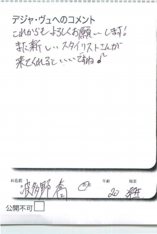 デジャ・ヴュへのコメント
これからもよろしくお願いします!
また新しいスタイリストさんが
来てくれるといいですね♪
お名前
波多野
年齢
職業
20
公開不可